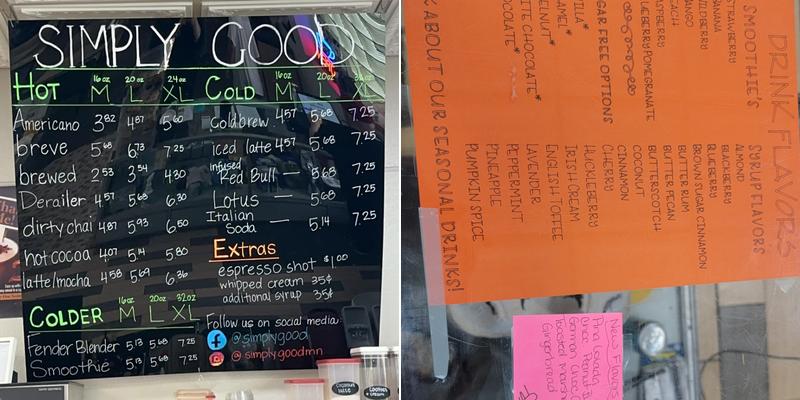 SIMPLY GOOD
HOT 16oz M 20oz L 24oz XL
Americano 3.82 4.87 5.60
breve 5.68 6.73 7.25
brewed 2.53 3.54 4.30
Derailer 4.57 5.68 6.30
dirty chai 4.87 5.93 6.50
hot cocoa 4.07 5.14 5.80
latte/mocha 4.58 5.69 6.36
COLD 16oz M 20oz L XL
Coldbrew 4.57 5.68 7.25
iced latte 4.57 5.68 7.25
infused
Red Bull — 5.68 7.25
Lotus — 5.68 7.25
Italian
Soda — 5.14 7.25
Extras
espresso shot $1.00
whipped cream 35¢
additional syrup 35¢
COLDER 16oz M 20oz L 32oz XL
Fender Blender 5.13 5.68 7.25
Smoothie 5.13 5.68 7.25
Follow us on social media:
@simplygood
@simplygoodmn
DRINK FLAVORS
SMOOTHIE'S
STRAWBERRY
BANANA
WILDBERRY
MANGO
PEACH
RASPBERRY
BLUEBERRY POMEGRANATE
SUGAR FREE OPTIONS
WHITE CHOCOLATE*
SYRUP FLAVORS
ALMOND
BLACKBERRY
BLUEBERRY
BROWN SUGAR CINNAMON
BUTTER RUM
BUTTER PECAN
BUTTERSCOTCH
COCONUT
CINNAMON
CHERRY
HUCKLEBERRY
IRISH CREAM
ENGLISH TOFFEE
LAVENDER
PEPPERMINT
PINEAPPLE
PUMPKIN SPICE
ABOUT OUR SEASONAL DRINKS!
New Flavors
Pina Colada
German Choc
Toasted
Gingerbread